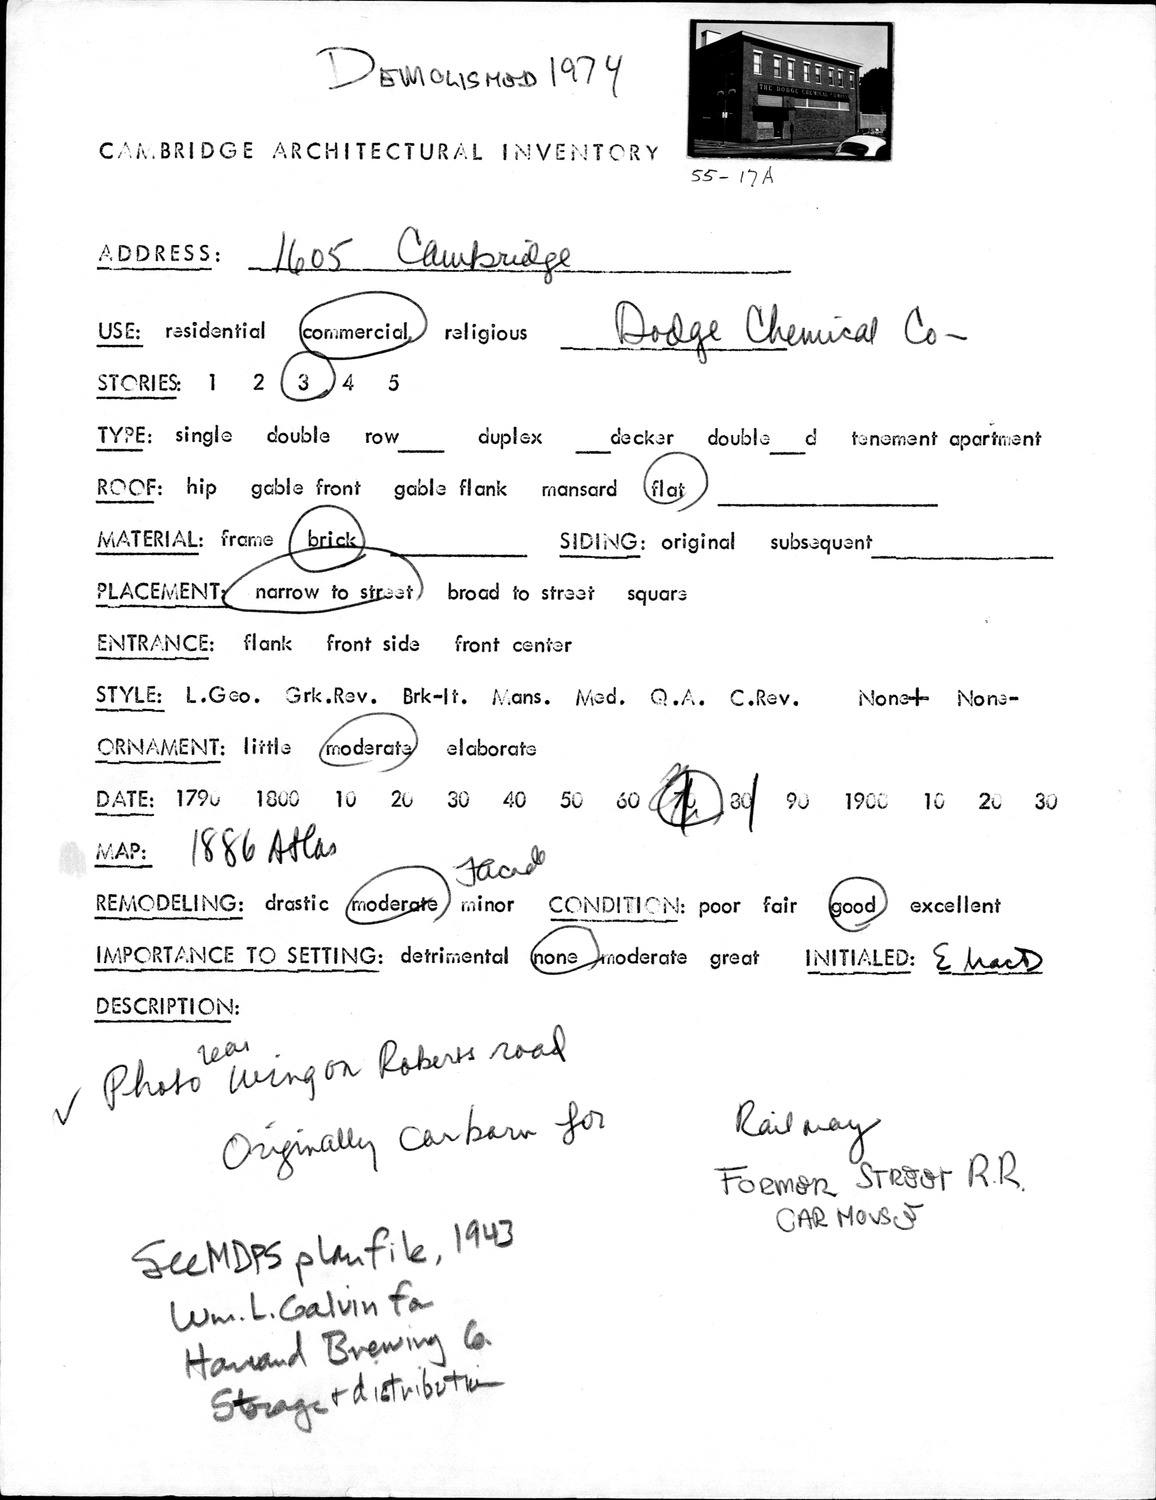 DEMOLISHED 1974
THE DODGE CHEMICAL COMPANY
CAMBRIDGE ARCHITECTURAL INVENTORY
55-17A
ADDRESS: 1605 Cambridge
USE: residential commercial religious Dodge Chemical Co-
STORIES: 1 2 3 4 5
TYPE: single double row___ duplex ___decker double___d tenement apartment
ROOF: hip gable front gable flank mansard flat
MATERIAL: frame brick SIDING: original subsequent
PLACEMENT: narrow to street broad to street square
ENTRANCE: flank front side front center
STYLE: L.Geo. Grk.Rev. Brk-It. Mans. Med. Q.A. C.Rev. None+ None-
ORNAMENT: little moderate elaborate
DATE: 1790 1800 10 20 30 40 50 60 70 80 90 1900 10 20 30
MAP: 1886 Atlas
Facade
REMODELING: drastic moderate minor CONDITION: poor fair good excellent
IMPORTANCE TO SETTING: detrimental none moderate great INITIALED: E
DESCRIPTION:
✓ Photo rear wing on Roberts road
Originally car barn for Railway
FORMER STREET R.R.
CAR HOUSE
See MDPS plan file, 1943
Wm. L. Galvin for
Harvard Brewing Co.
Storage + distribution